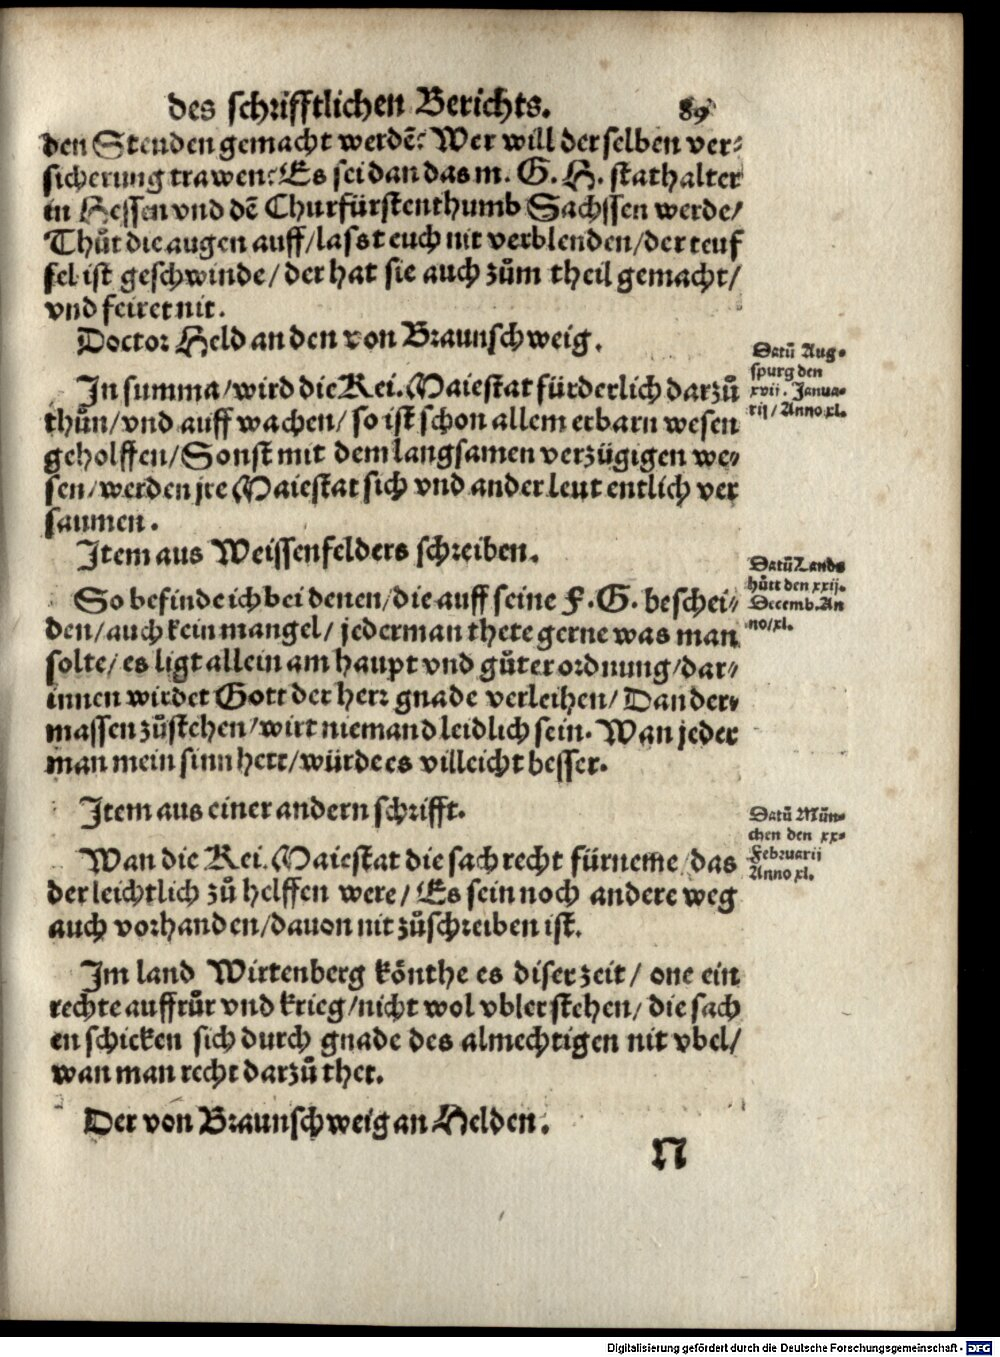 des schrifftlichen Berichts. 89
den Stenden gemacht werdẽ: Wer will der selben ver⸗
sicherung trawen: Es sei dan das m. G. H. stathalter
in Hessen vnd dẽ Churfürstenthumb Sachssen werde/
Thůt die augen auff/lasst euch nit verblenden/der teuf
fel ist geschwinde/der hat sie auch zům theil gemacht/
vnd feiret nit.
Doctor Held an den von Braunschweig.
Datũ Aug⸗
spurg den
xvij. Janua⸗
rij/Anno xl.
In summa/wird die Kei. Maiestat fürderlich darzů
thůn/vnd auff wachen/so ist schon allem erbarn wesen
geholffen/Sonst mit dem langsamen verzügigen we⸗
sen/werden jre Maiestat sich vnd ander leut entlich ver
saumen.
Item aus Weissenfelders schreiben.
Datũ Lands
hůtt den xxij.
Decemb. An
no/xl.
So befinde ich bei denen/die auff seine F. G. beschei⸗
den/auch kein mangel/jederman thete gerne was man
solte/es ligt allein am haupt vnd gůter ordnung/dar⸗
innen wirdet Gott der herr gnade verleihen/Dan der⸗
massen zůstehen/wirt niemand leidlich sein. Wan jeder
man mein sinn hett/würde es villeicht besser.
Item aus einer andern schrifft.
Datũ Mün⸗
chen den xx⸗
Februarij
Anno xl.
Wan die Kei. Maiestat die sach recht fürneme/das
der leichtlich zů helffen were/Es sein noch andere weg
auch vorhanden/dauon nit zůschreiben ist.
Im land Wirtenberg könthe es diser zeit/one ein
rechte auffrůr vnd krieg/nicht wol vbler stehen/die sach
en schicken sich durch gnade des almechtigen nit vbel/
wan man recht darzů thet.
Der von Braunschweig an Helden.
N
Digitalisierung gefördert durch die Deutsche Forschungsgemeinschaft - DFG